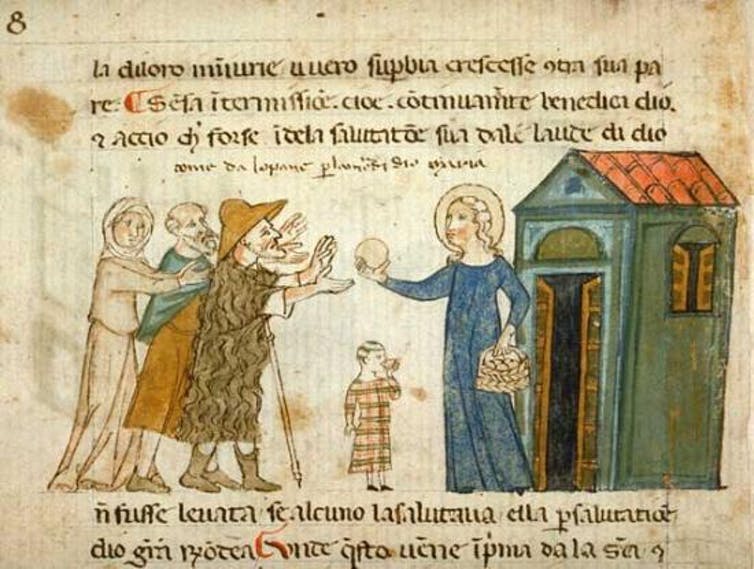 8
la diloro iniurie uuero supbia crescesse ɔtra sua pa
re. Sēsa ītermissiōe. cioe. cōtinuamēte benedicea dio.
⁊ accio ch̄ forse īdela salutatōe sua dale laude di dio
come da lopane p lamore di dio maria
n̄ fusse leuata. se alcuno la salutaua, ella p salutatiōe
dio gr̄a Onde q̄sto uēne īprima da la Sc̄a ⁊